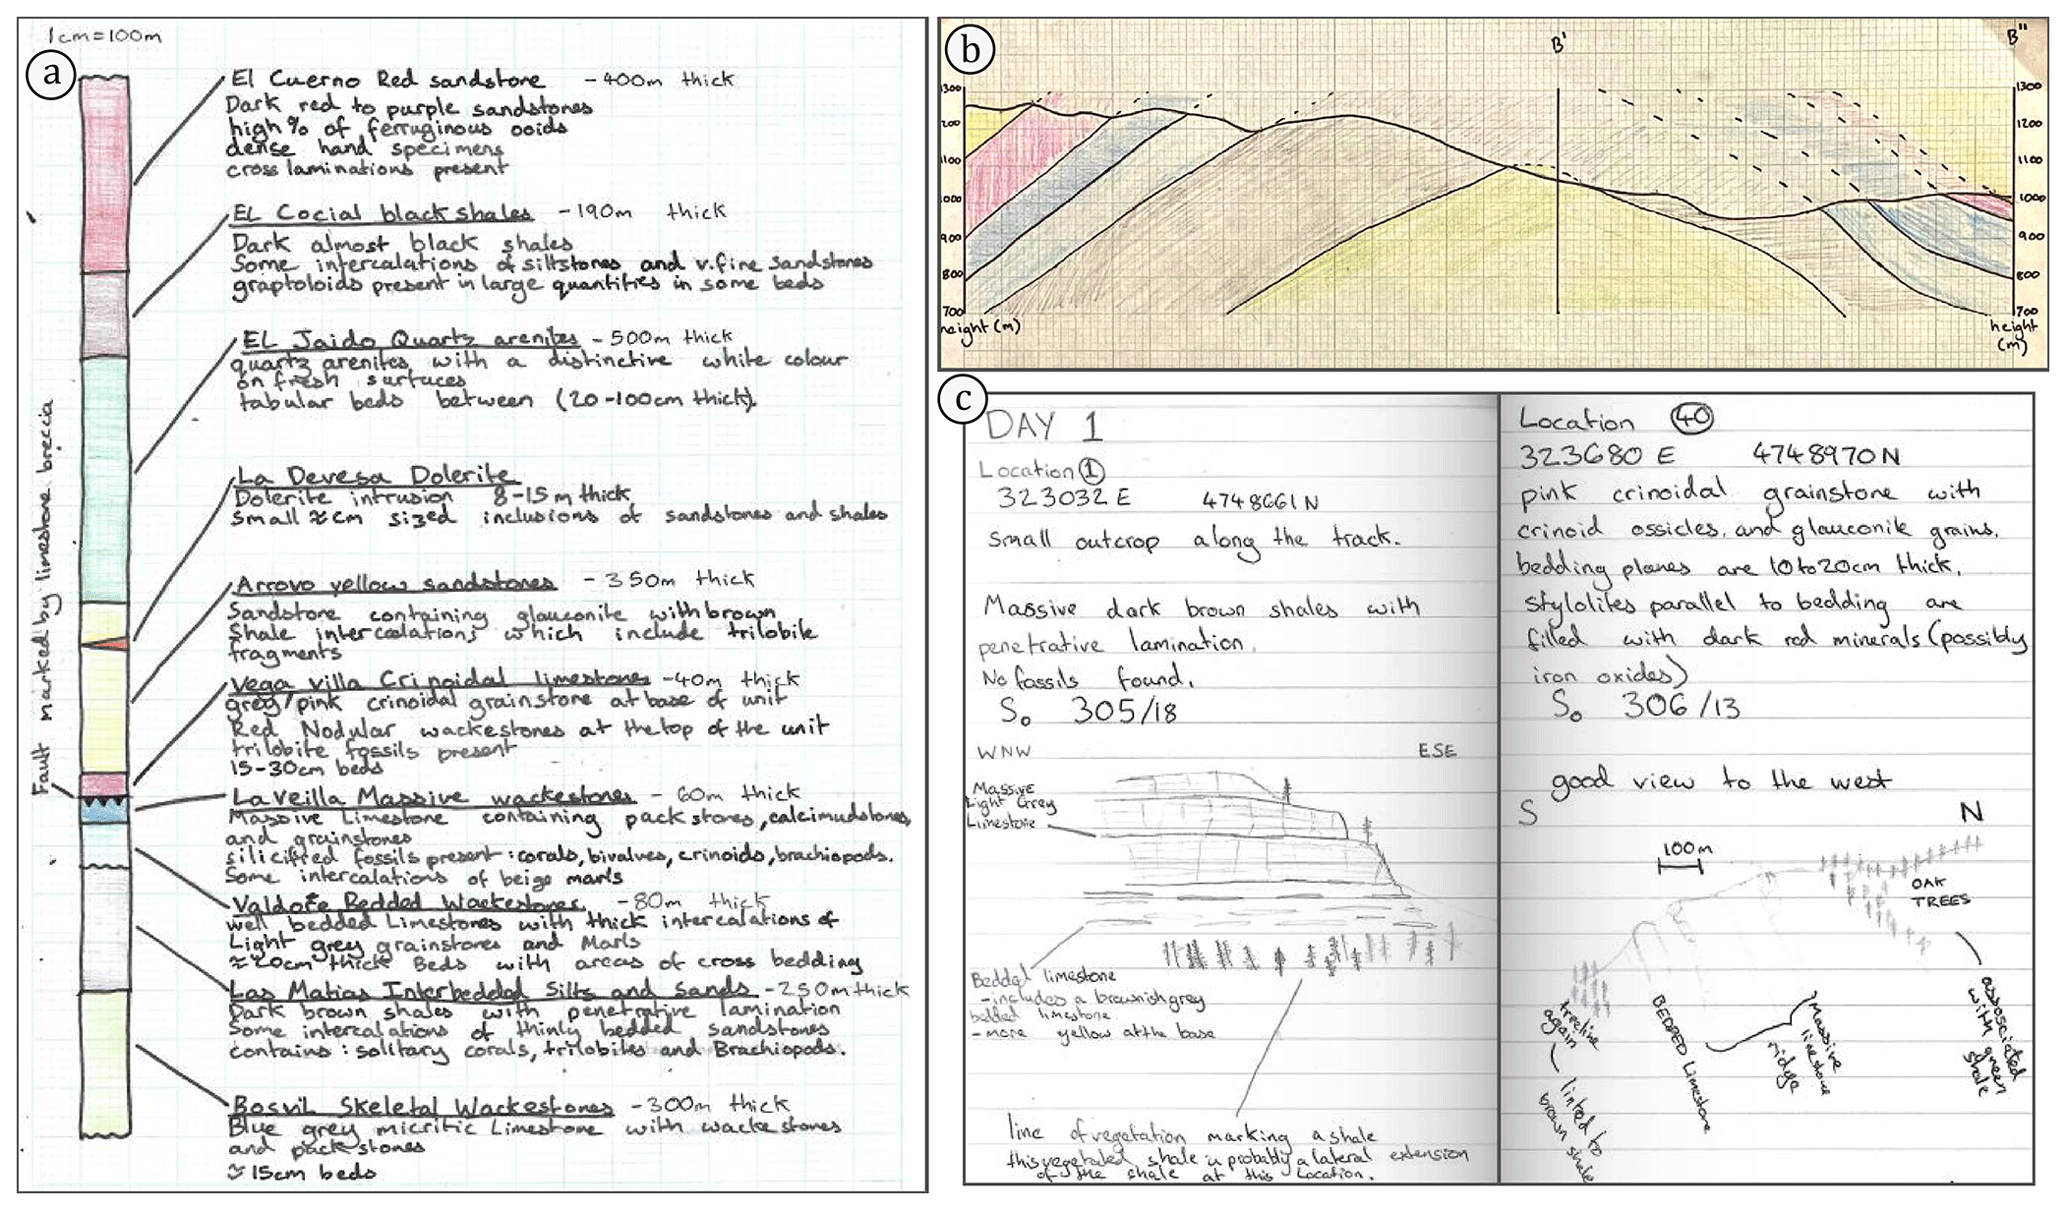 a
1cm=100m
El Cuerno Red sandstone -400m thick
Dark red to purple sandstones
high % of ferruginous ooids
dense hand specimens
cross laminations present
EL Cocial black shales -190m thick
Dark almost black shales
Some intercalations of siltstones and v.fine sandstones
graptoloids present in large quantities in some beds
EL Jaido Quartz arenites - 500m thick
quartz arenites, with a distinctive white colour
on fresh surfaces
tabular beds between (20-100cm thick).
La Devesa Dolerite
Dolerite intrusion 8-15m thick
Small ≈cm sized inclusions of sandstones and shales
Arroyo yellow sandstones - 350m thick
Sandstone containing glauconite with brown
Shale intercalations which include trilobite
fragments
Vega villa Crinoidal limestones -40m thick
grey/pink crinoidal grainstone at base of unit
Red Nodular wackestones at the top of the unit
trilobite fossils present
15-30cm beds
Fault marked by limestone breccia
La Veilla Massive wackestones - 60m thick
Massive Limestone containing packstones, calcimudstones,
and grainstones
silicified fossils present: corals, bivalves, crinoids, brachiopods.
Some intercalations of beige marls
Valdoré Bedded Wackestones. -80m thick
well bedded Limestones with thick intercalations of
Light grey grainstones and Marls
≈20cm thick Beds with areas of cross bedding
Las Matias Interbedded Silts and Sands -250m thick
Dark brown shales with penetrative lamination
Some intercalations of thinly bedded sandstones
contains: solitary corals, trilobites and Brachiopods.
Bosvil Skeletal Wackestones -300m thick
Blue grey micritic Limestone with wackestones
and packstones
≈15cm beds
b
B'
B"
1300
1200
1100
1000
900
800
700
height (m)
1300
1200
1100
1000
900
800
700
height
(m)
c
DAY 1
Location 1
323032 E 4748661 N
small outcrop along the track.
Massive dark brown shales with
penetrative lamination.
No fossils found.
So 305/18
WNW ESE
Massive
Light Grey
Limestone
Bedded limestone
-includes a brownish grey
bedded limestone
- more yellow at the base
line of vegetation marking a shale
this vegetated shale is probably a lateral extension
of the shale at this location.
Location 40
323680 E 4748970 N
pink crinoidal grainstone with
crinoid ossicles, and glauconite grains.
bedding planes are 10 to 20cm thick.
stylolites parallel to bedding are
filled with dark red minerals (possibly
iron oxides)
So 306/13
good view to the west
S N
100m
OAK
TREES
associated
with green
shale
Massive
limestone
ridge
BEDDED Limestone
treeline
again
linked to
brown shale